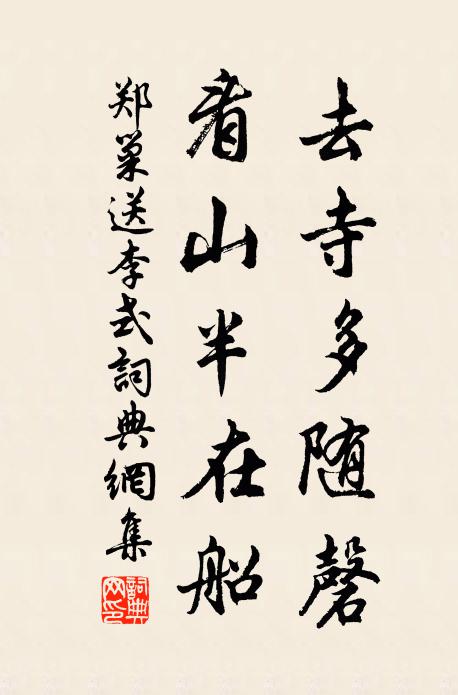 去寺多随磬
看山半在船
郑巢送李式詞典網集
詞典网印